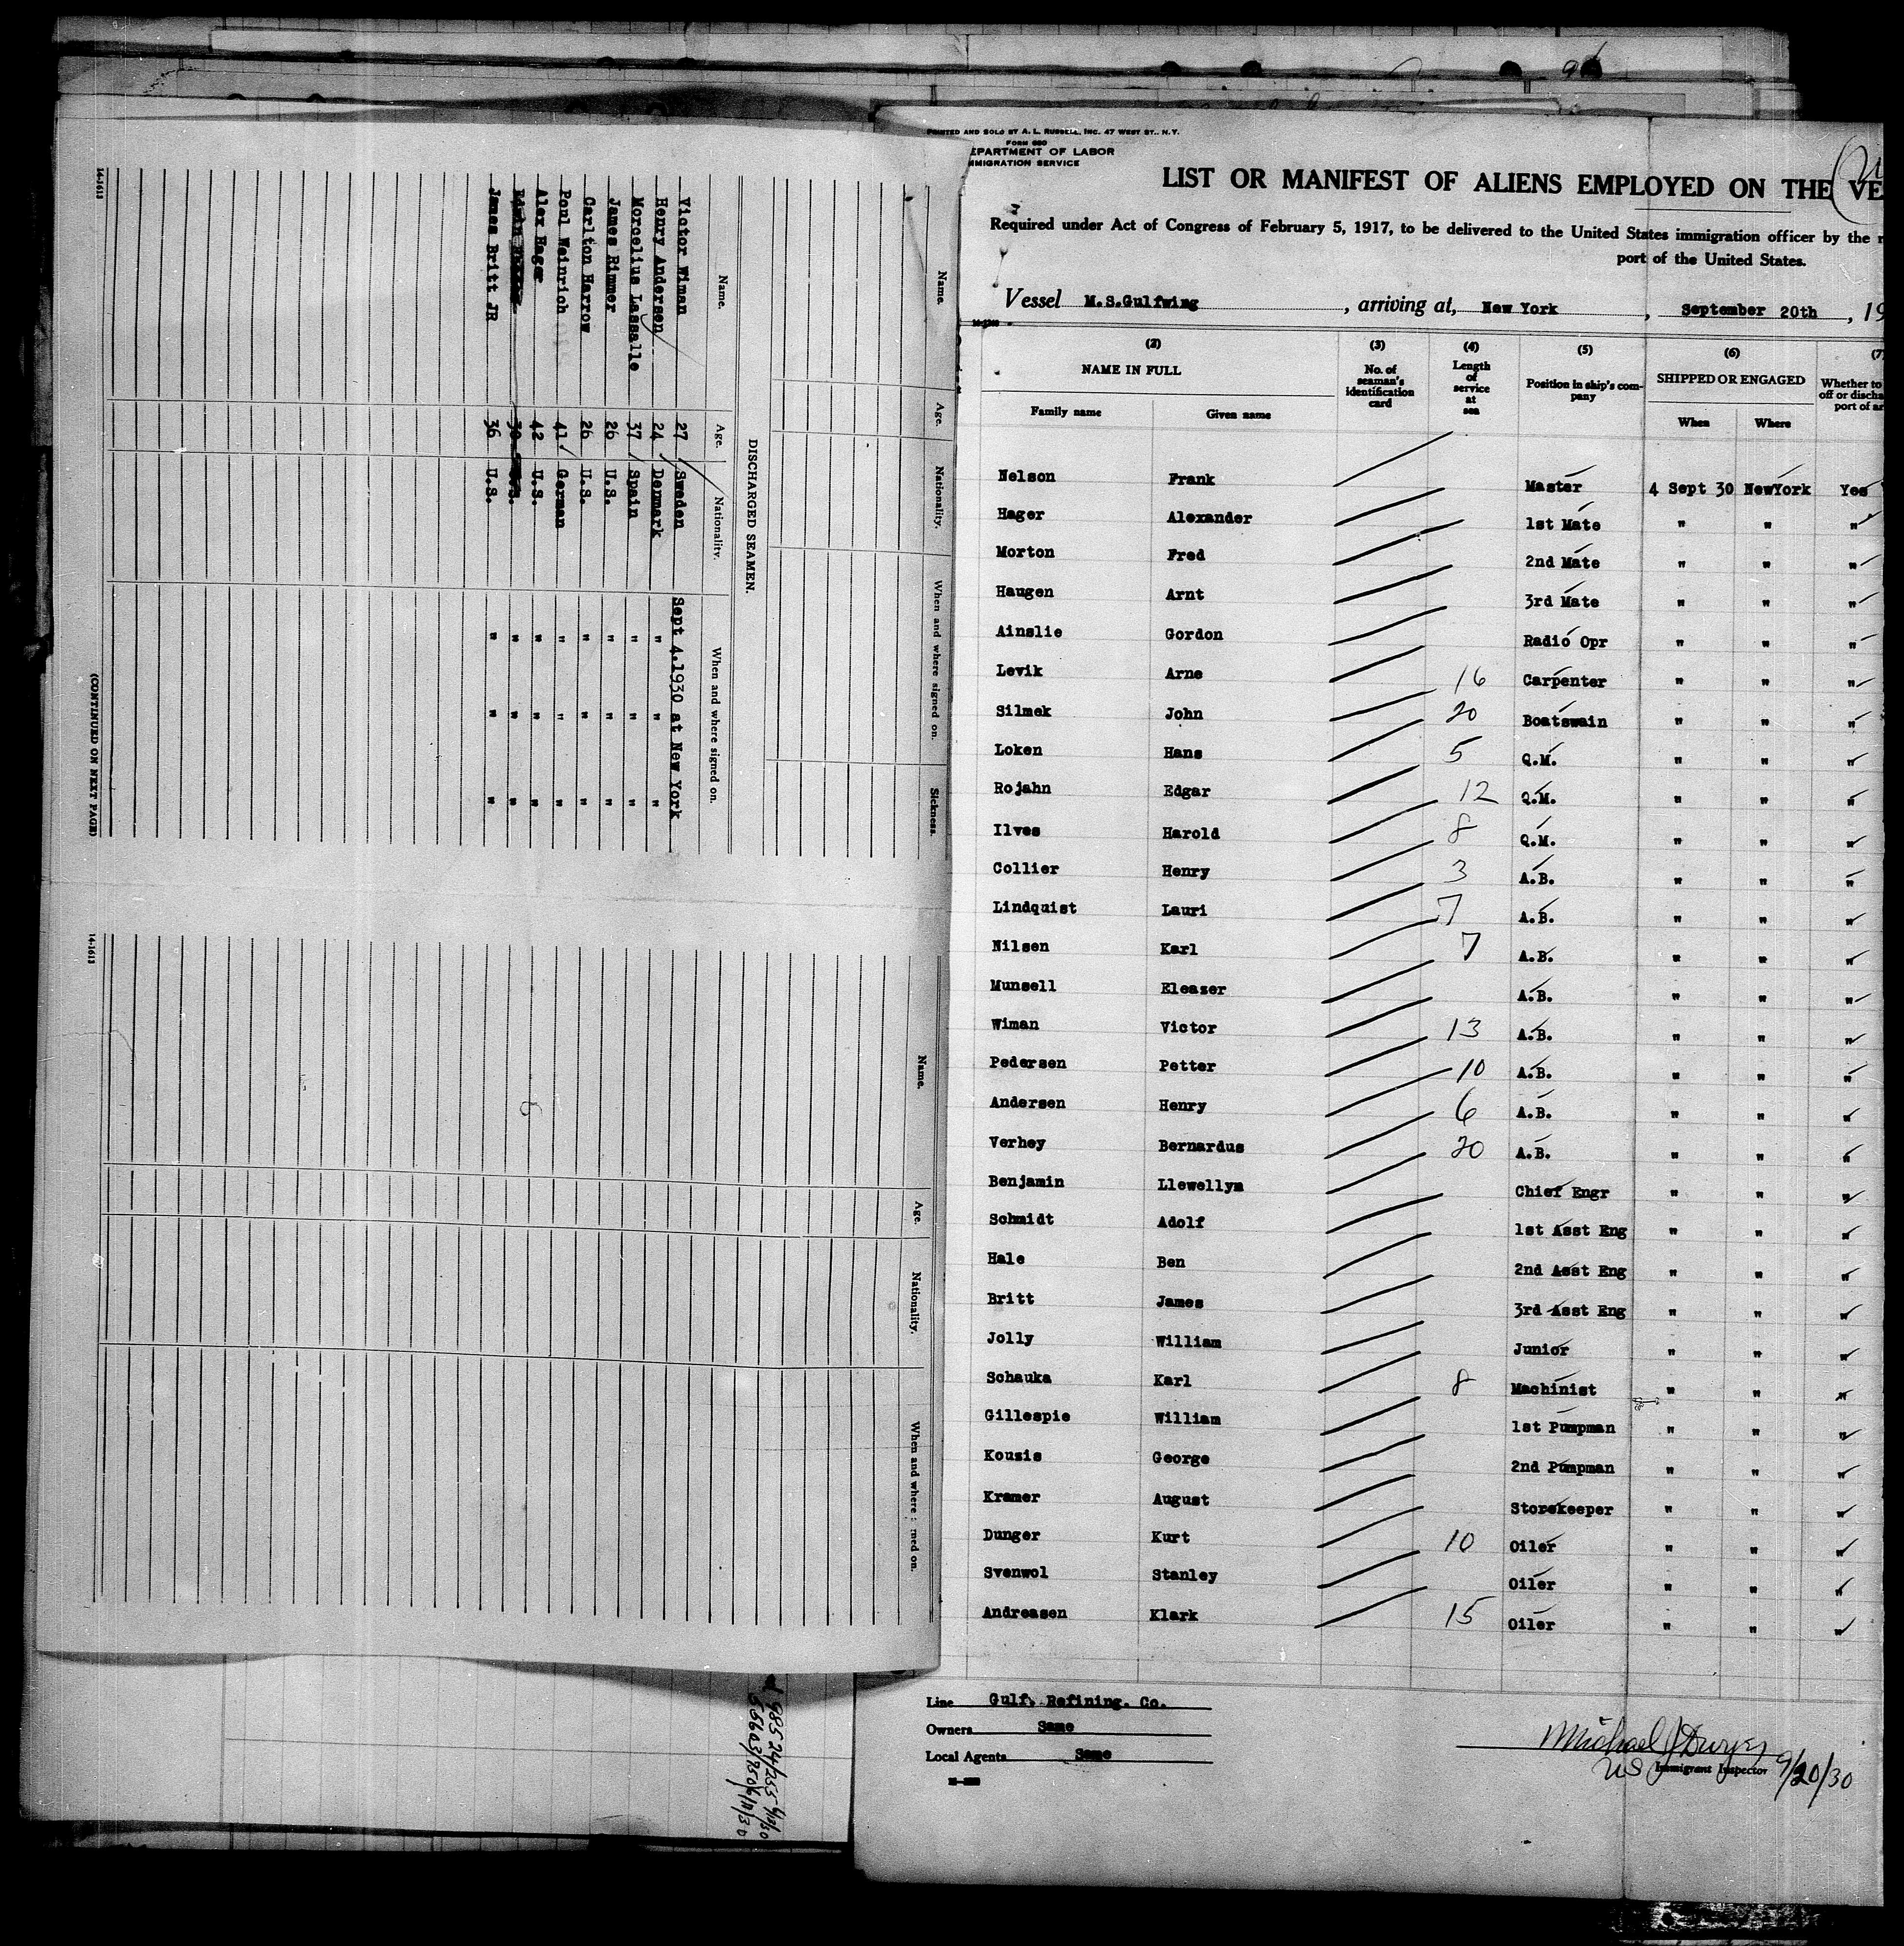 Name. Age. Nationality. When and where signed on. Sickness.
DISCHARGED SEAMEN.
Name. Age. Nationality. When and where signed on.
Victor Wiman 27 Sweden Sept 4.1930 at New York
Henry Andersen 24 Denmark " " "
Morcelius Lassalle 37 Spain " " "
James Rimmer 26 U.S. " " "
Carlton Harrow 26 U.S. " " "
Ponl Weinrich 41 German " " "
Alex Hager 42 U.S. " " "
30 " " "
James Britt JR 36 U.S. " " "
(CONTINUED ON NEXT PAGE)
14-1613
Name. Age. Nationality. When and where
14-1613
98524/255 6/12/30
PRINTED AND SOLD BY A. L. RUSSELL, INC. 47 WEST ST., N.Y.
FORM 680
EPARTMENT OF LABOR
MMIGRATION SERVICE
LIST OR MANIFEST OF ALIENS EMPLOYED ON THE VE
Required under Act of Congress of February 5, 1917, to be delivered to the United States immigration officer by the
port of the United States.
Vessel M.S.Gulfwing, arriving at, New York, September 20th, 19
(2) (3) (4) (5) (6) (7)
NAME IN FULL No. of seaman's identification card Length of service at sea Position in ship's company SHIPPED OR ENGAGED Whether to
off or discha
port of ar
Family name Given name When Where
Nelson Frank Master 4 Sept 30 NewYork Yes
Hager Alexander 1st Mate " " "
Morton Fred 2nd Mate " " "
Haugen Arnt 3rd Mate " " "
Ainslie Gordon Radio Opr " " "
Levik Arne 16 Carpenter " " "
Silmek John 20 Boatswain " " "
Loken Hans 5 Q.M. " " "
Rojahn Edgar 12 Q.M. " " "
Ilves Harold 8 Q.M. " " "
Collier Henry 3 A.B. " " "
Lindquist Lauri 7 A.B. " " "
Nilsen Karl 7 A.B. " " "
Munsell Eleazer A.B. " " "
Wiman Victor 13 A.B. " " "
Pedersen Petter 10 A.B. " " "
Andersen Henry 6 A.B. " " "
Verhey Bernardus 20 A.B. " " "
Benjamin Llewellyn Chief Engr " " "
Schmidt Adolf 1st Asst Eng " " "
Hale Ben 2nd Asst Eng " " "
Britt James 3rd Asst Eng " " "
Jolly William Junior " " "
Schauka Karl 8 Machinist " " "
Gillespie William 1st Pumpman " " "
Kousis George 2nd Pumpman " " "
Kramer August Storekeeper " " "
Dunger Kurt 10 Oiler " " "
Svenwol Stanley Oiler " " "
Andreasen Klark 15 Oiler " " "
Line Gulf. Refining. Co.
Owners Same
Local Agents Same
Michael J Dwyer
US Immigrant Inspector 9/20/30